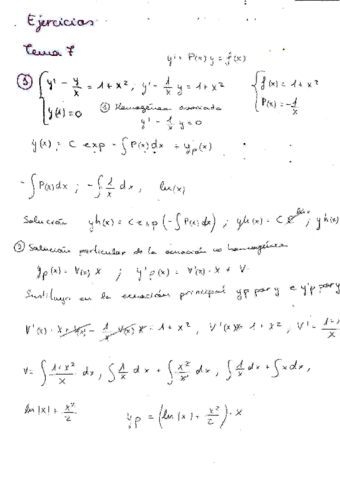 Ejercicios
Tema 7
y' + P(x) y = f(x)
③ { y' - y/x = 1 + x², y' - 1/x y = 1 + x² { f(x) = 1 + x²
y(1) = 0 P(x) = -1/x
① Homogénea asociada
y' - 1/x y = 0
y(x) = C exp - ∫P(x) dx + yp(x)
-∫P(x) dx ; -∫ 1/x dx, ln(x)
Solución yh(x) = C exp (-∫P(x) dx) ; yh(x) = C e^ln x ; yh(x)
② Solución particular de la ecuación no homogénea
yp(x) = V(x) · x ; y'p(x) = V'(x) · x + V
Sustituyo en la ecuación principal yp por y e y'p por y'
V'(x) · x + V(x) - 1/x V(x) x = 1 + x², V'(x) x = 1 + x², V' =
V = ∫ 1+x²/x dx, ∫ 1/x dx + ∫ x²/x dx, ∫ 1/x dx + ∫ x dx,
ln|x| + x²/2 yp = (ln|x| + x²/2) · x